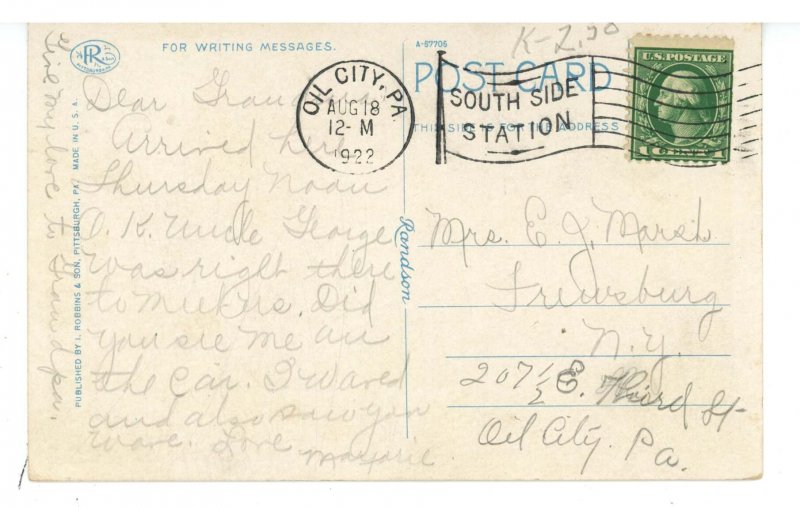 FOR WRITING MESSAGES.
A-67706
K-2.50
POST CARD
THIS SIDE IS FOR THE ADDRESS
U.S. POSTAGE
1 CENT 1
OIL CITY, PA
AUG 18
12-M
1922
SOUTH SIDE
STATION
PR
PITTSBURGH PA
PUBLISHED BY I. ROBBINS & SON, PITTSBURGH, PA. MADE IN U.S.A.
Rondson
Dear Grandma
Arrived here
Thursday Noon
O.K. Uncle George
was right there
to meet us. Did
you see me in
the car. I waved
and also saw you
wave. Love
Marjorie
Give my love to Grandpa.
Mrs. E. J. Marsh
Frewsburg
N.Y.
207 1/2 E. Third St
Oil City. Pa.